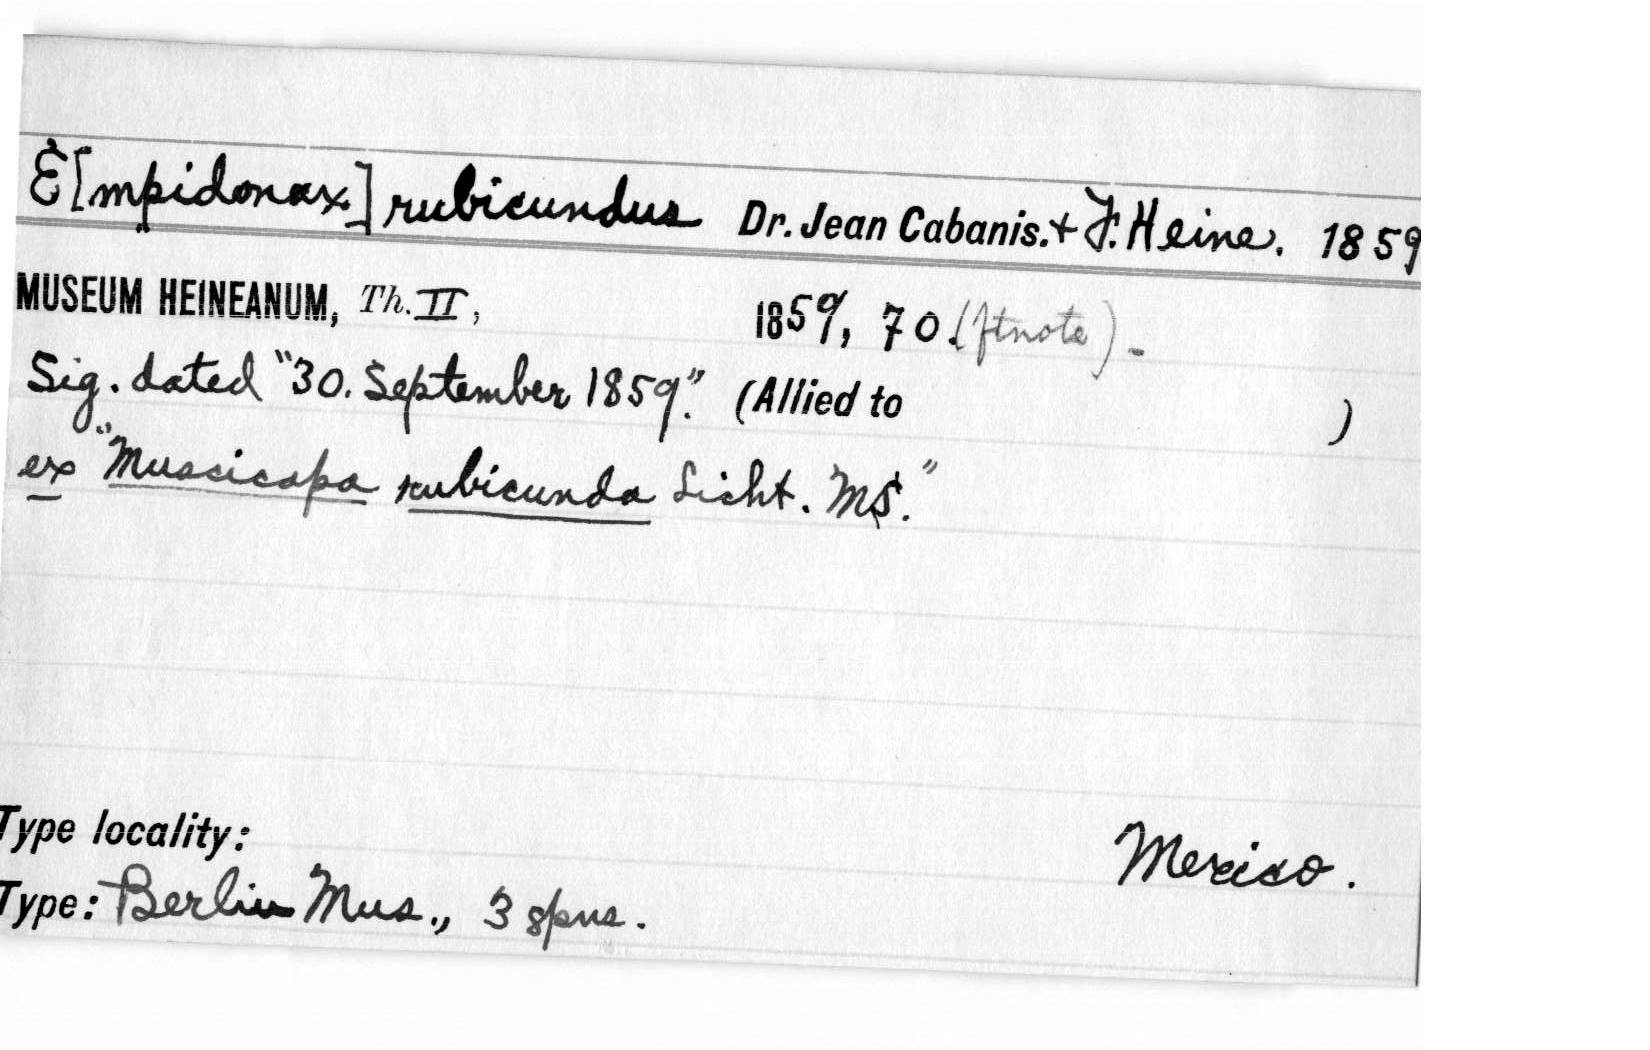 E[mpidonax] rubicundus Dr. Jean Cabanis. + F. Heine. 1859
MUSEUM HEINEANUM, Th. II, 1859, 70. (ftnote).
Sig. dated "30. September 1859". (Allied to )
ex "Muscicapa rubicunda Licht. MS."
Type locality: Mexico.
Type: Berlin Mus., 3 spns.